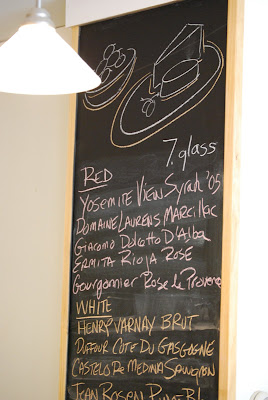 7. glass
RED
YOSEMITE VIEW SYRAH '05
DOMAINE LAURENS MARCILLAC
Giacomo Dolcetto D'Alba
ERMITA RIOJA ROSE
Gourgonnier Rose de Provence
WHITE
HENRY VARNAY BRUT
DUFFOUR COTE DU GASGOGNE
CASTELO DE MEDINA SAUVIGNON
JEAN BOSEN PINOT BL